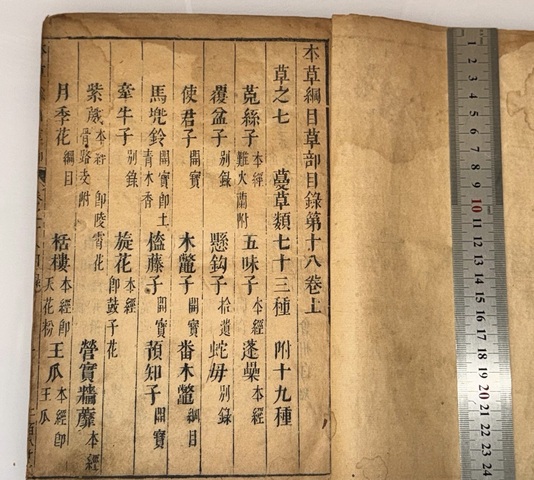 本草綱目草部目錄第十八卷上
草之七 蔓草類七十三種 附十九種
菟絲子 本經 難火蘭附 五味子 本經 蓬蘽 本經
覆盆子 別錄 懸鈎子 拾遺 蛇莓 別錄
使君子 開寶 木鼈子 開寶 番木鼈 綱目
馬兜鈴 開寶即土青木香 榼藤子 開寶 預知子 開寶
牽牛子 別錄 旋花 本經即鼓子花
紫葳 本經即陵霄花 骨路支附 營實牆蘼 本經
月季花 綱目 栝樓 本經即天花粉 王瓜 本經即王瓜
1
2
3
4
5
6
7
8
9
10
11
12
13
14
15
16
17
18
19
20
21
22
23
24